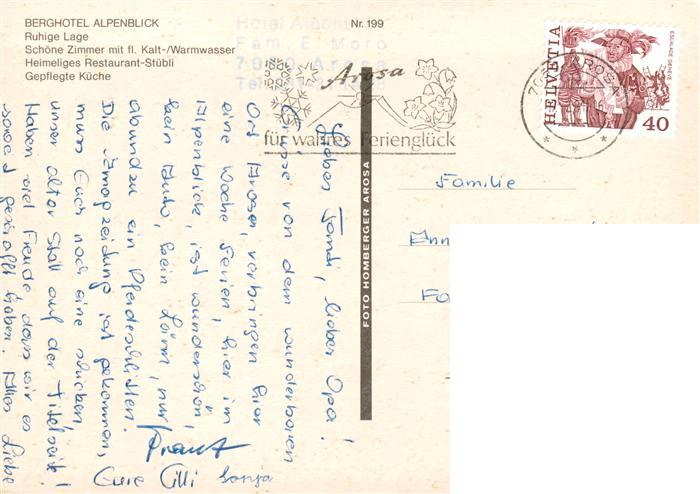 BERGHOTEL ALPENBLICK
Ruhige Lage
Schöne Zimmer mit fl. Kalt-/Warmwasser
Heimeliges Restaurant-Stübli
Gepflegte Küche
Nr. 199
Hotel Alpenblick
Fam. E. Moro
7050 Arosa
Arosa
für wahres Ferienglück
AROSA
HELVETIA
ESCALADE GENÈVE
40
FOTO HOMBERGER AROSA
Familie
Lieber Opa!
Grüsse von dem wunderbaren
Ort Arosa, verbringen hier
eine Woche Ferien, hier im
Alpenblick, ist wunderschön,
kein Auto, kein Lärm, nur
ab und zu ein Pferdeschlitten.
Die Zeidung ist gekommen,
muss Euch noch eine schicken,
unser alter Stall auf der Titelseite!
Haben viel Freude dass wir es
soweit geschafft haben. Alles Liebe
Eure Cilli Sonja
Franz